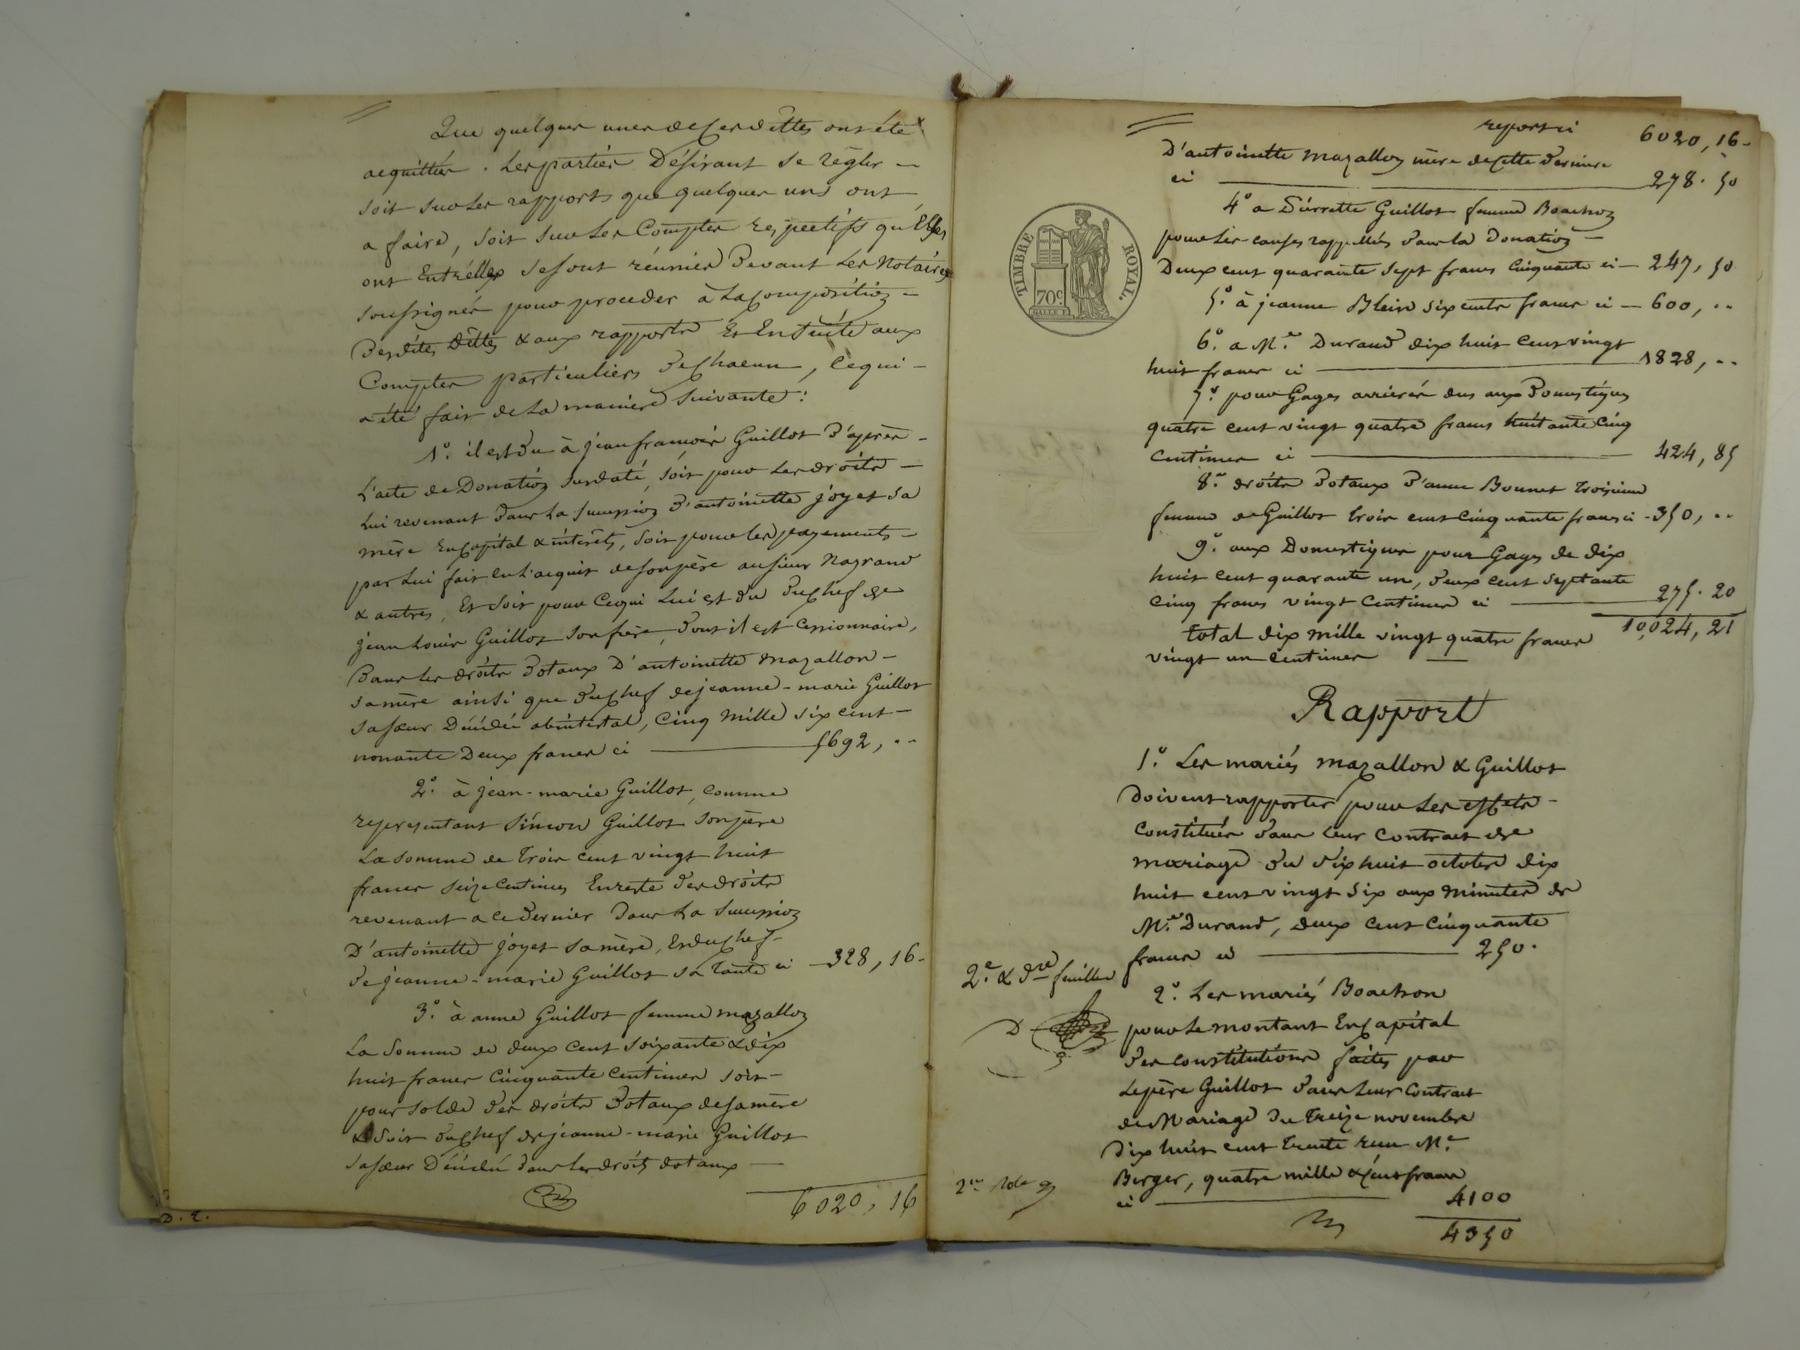 Que quelques unes de ces dettes ont été
acquittées. Les parties Désirant se règler
soit sur les rapports que quelques uns ont
a faire, soit sur les Comptes respectifs qu'Elles
ont Entr'elles se sont réunies Devant Les Notaires
soussignés pour proceder à La Composition
Desdites Dettes & aux rapports Et Ensuite aux
Comptes particuliers De Chacun, Ce qui
a été fait de La maniere Suivante:
1°. il est Du à jean françois Guillot D'après
L'acte de Donation susdaté, soit pour Les droits
Lui revenant Dans La succession D'antoinette joyet sa
mère En Capital & intérêts, soit pour les payements
par Lui fait en L'acquit de son père au sieur Nayrand
& autres, Et Soit pour Ce qui Lui est Du Du Chef de
jean Louis Guillot son frère Dont il est Cessionnaire,
Dans Les droits Dotaux D'antoinette mazallon
sa mère ainsi que Du Chef de jeanne-marie Guillot
sa sœur Décédée abintestat, Cinq Mille six cent
nonante Deux francs ci 5692, ..
2°. à jean-marie Guillot, comme
representant Simon Guillot son père
La somme de Trois cent vingt huit
francs seize Centimes En reste Des droits
revenant a ce Dernier Dans La succession
D'antoinette joyet sa mère, Et du Chef
De jeanne-marie Guillot sa Tante ci 328, 16
3°. à anne Guillot femme mazallon
La Somme de deux Cent soixante & dix
huit francs Cinquante Centimes soit
pour solde Des droits Dotaux de sa mère
& Soit Du Chef de jeanne-marie Guillot
sa sœur Décédée Dans Les droits dotaux
6020, 16
D. L.
report ci 6020, 16
D'antoinette mazallon mère de Cette Derniere
ci 278. 50
4° a Pierrette Guillot femme Boachon
pour Les causes rappellées Dans La Donation
Deux cent quarante sept francs Cinquante ci 247, 50
5°. à jeanne Blein six cents francs ci 600, ..
6°. a Me. Durand dix huit Cent vingt
huit francs ci 1828, ..
7°. pour Gages arriérés dus aux Domestiques
quatre cent vingt quatre francs huitante Cinq
Centimes ci 424, 85
8°. droits Dotaux D'anne Bonnet Troisieme
femme de Guillot Trois cent Cinquante francs ci 350, ..
9°. aux Domestiques pour Gages de dix
huit Cent quarante un, Deux cent Septante
Cinq francs vingt Centimes ci 275. 20
Total dix mille vingt quatre francs 10,024, 21
vingt un Centimes
TIMBRE ROYAL.
70c.
Rapport
1°. Les mariés mazallon & Guillot
Doivent rapporter pour Les effets
Constitués Dans Leur Contrat de
mariage Du Dix huit octobre dix
huit cent vingt six aux minutes de
Me. Durand, deux Cent Cinquante
francs ci 250.
2e. & dre feuilles
2°. Les mariés Boachon
pour Le montant En Capital
Des Constitutions faites par
Le père Guillot Dans Leur Contrat
de Mariage Du Treize novembre
Dix huit cent Trente reçu Me.
Berger, quatre mille & Cent francs
ci 4100
4350